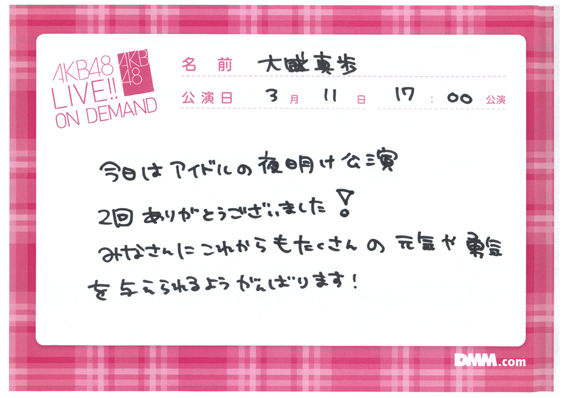 AKB48
LIVE!!
ON DEMAND
AKB
48
名前 大盛真歩
公演日 3月11日 17:00公演
今日はアイドルの夜明け公演
2回ありがとうございました!
みなさんにこれからもたくさんの元気や勇気
を与えられるようがんばります!
DMM.com